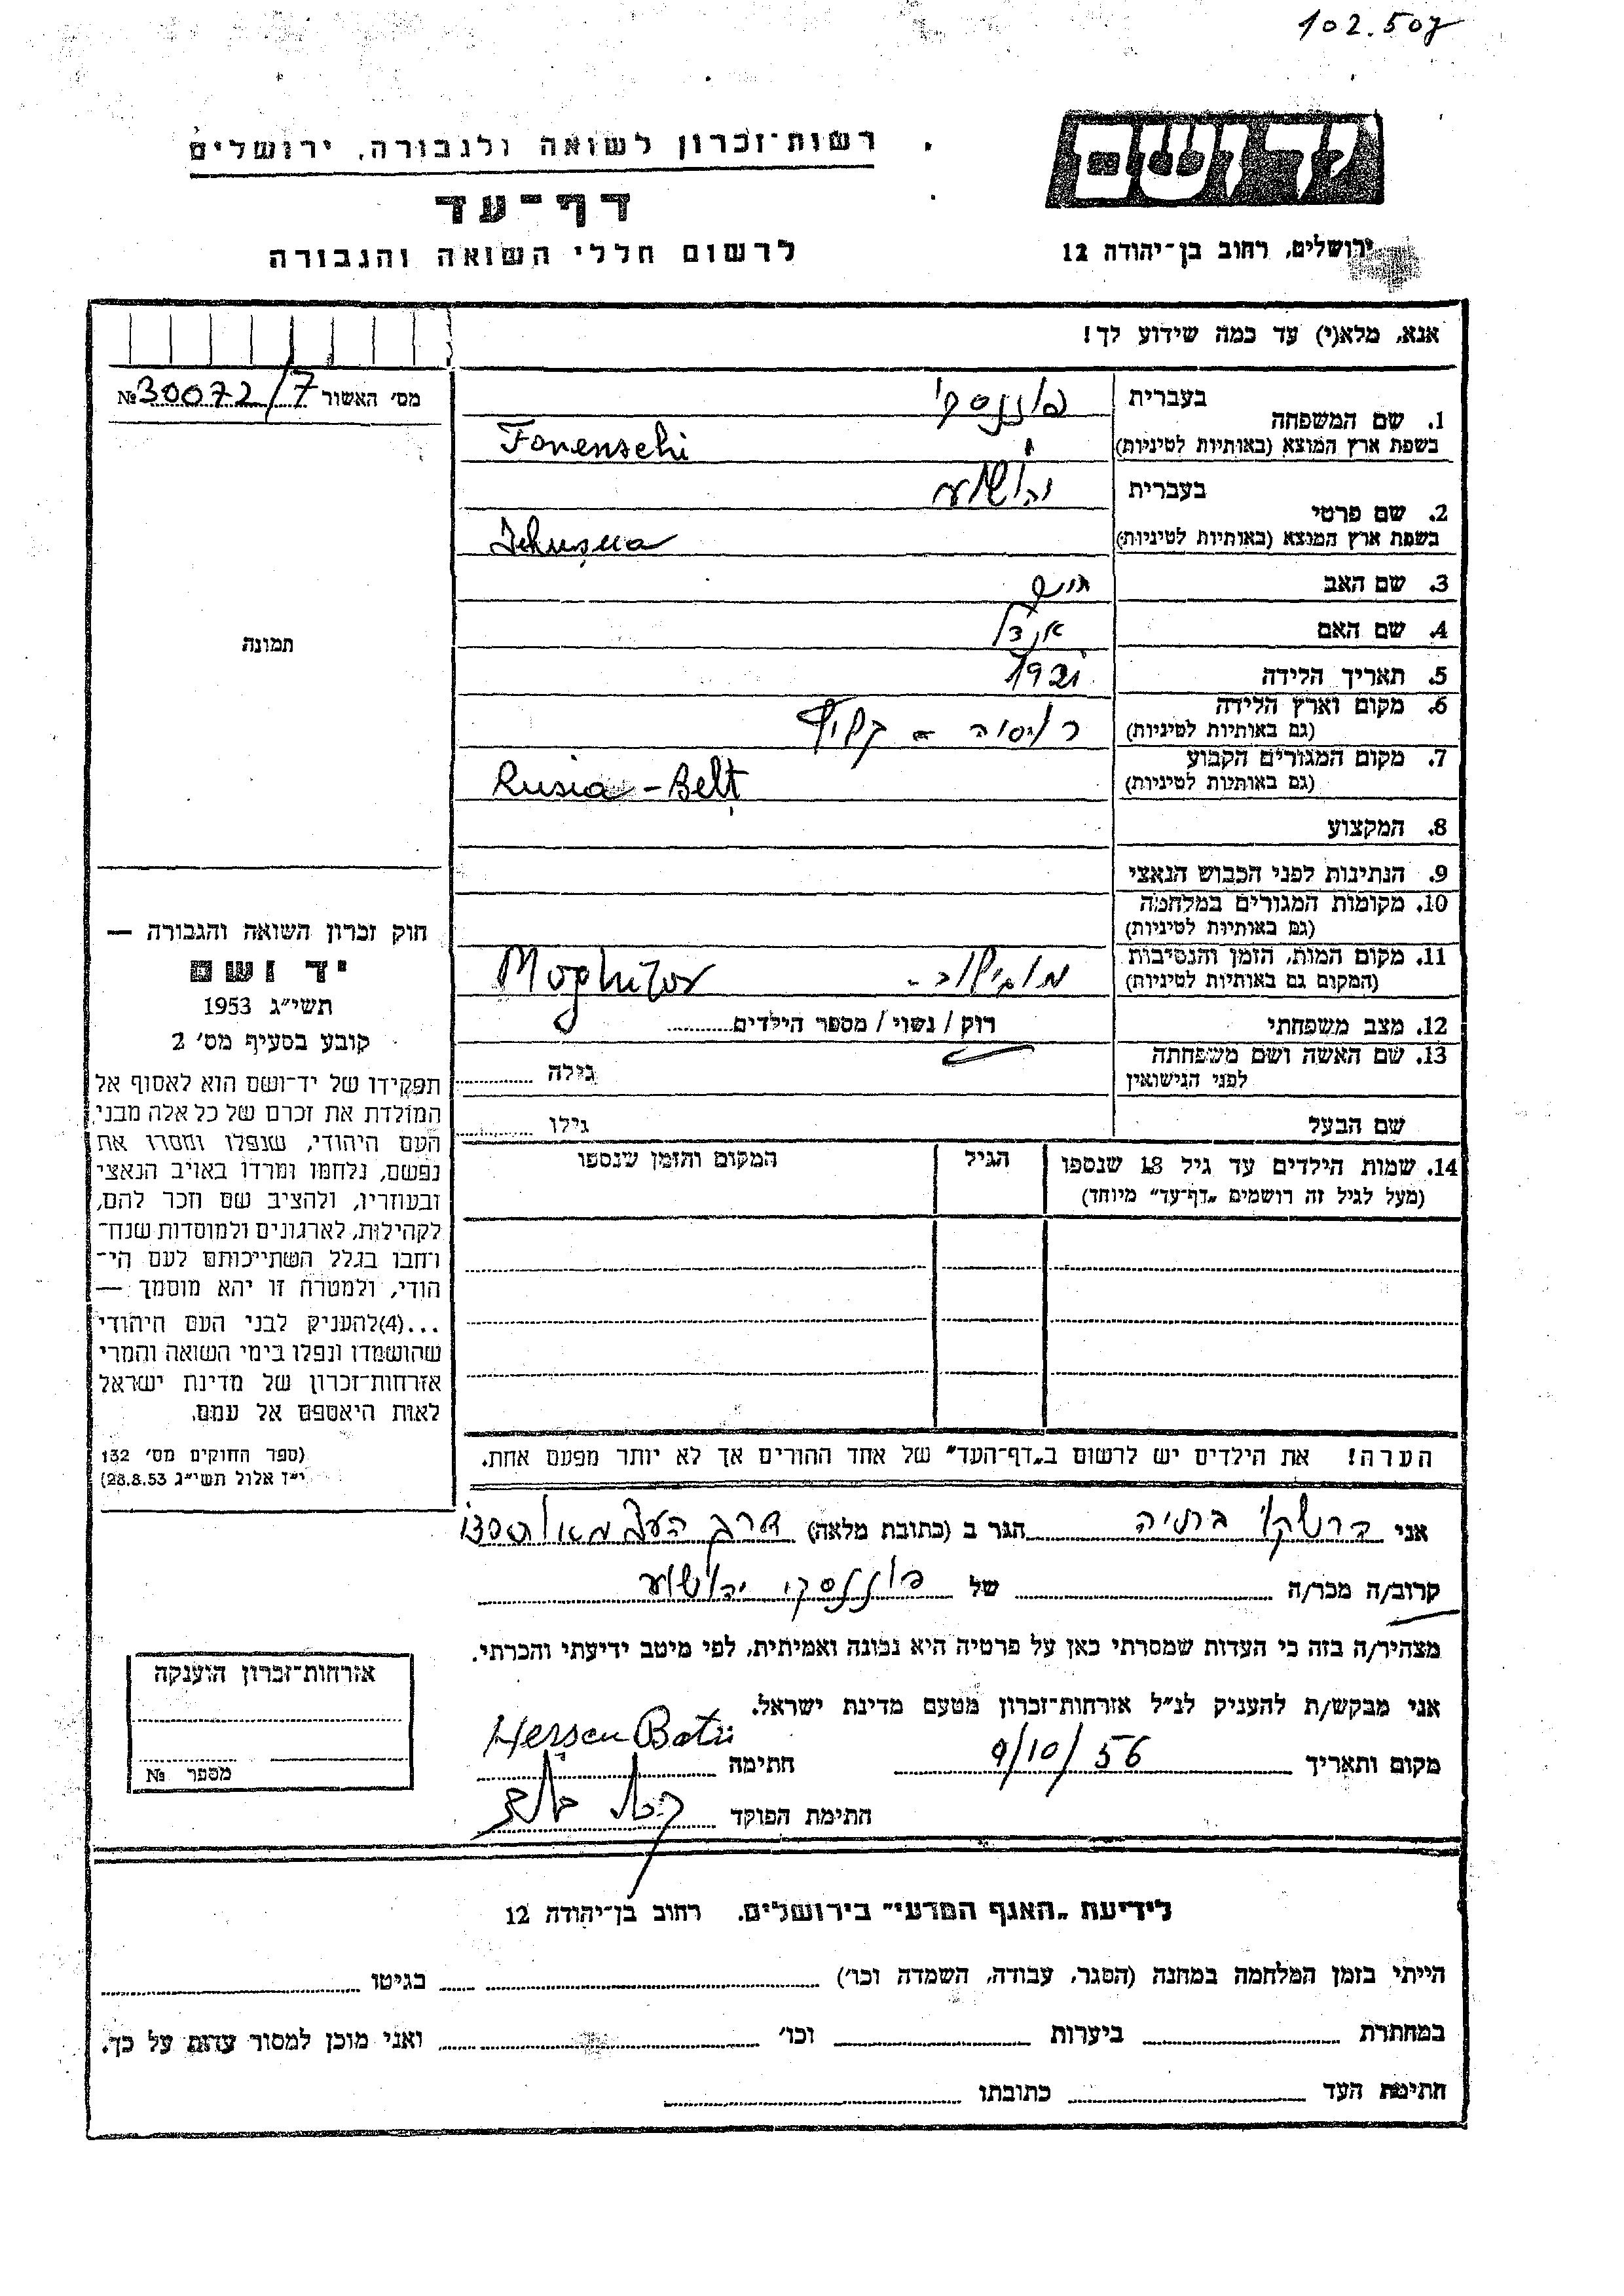 102.507
רשות־זכרון לשואה ולגבורה, ירושלים
דף־עד
לרשום חללי השואה והגבורה
יד ושם
ירושלים, רחוב בן־יהודה 12
אנא, מלא(י) עד כמה שידוע לך!
מס׳ האשור № 30072/7
1. שם המשפחה
בעברית
בשפת ארץ המוצא (באותיות לטיניות) Fonenschi
2. שם פרטי
בעברית יהושע
בשפת ארץ המוצא (באותיות לטיניות) Jehușua
3. שם האב
4. שם האם
5. תאריך הלידה 1921
6. מקום וארץ הלידה
(גם באותיות לטיניות) רוסיה -
7. מקום המגורים הקבוע
(גם באותיות לטיניות) Rusia - Belț
8. המקצוע
9. הנתינות לפני הכבוש הנאצי
10. מקומות המגורים במלחמה
(גם באותיות לטיניות)
11. מקום המות, הזמן והנסיבות
(המקום גם באותיות לטיניות) מוגילוב - Moghilov
12. מצב משפחתי רוק / נשוי / מספר הילדים
13. שם האשה ושם משפחתה
לפני הנישואין גילה
שם הבעל גילו
14. שמות הילדים עד גיל 18 שנספו הגיל המקום והזמן שנספו
(מעל לגיל זה רושמים „דף־עד״ מיוחד)
הערה! את הילדים יש לרשום ב„דף־העד״ של אחד ההורים אך לא יותר מפעם אחת.
תמונה
חוק זכרון השואה והגבורה —
יד ושם
תשי״ג 1953
קובע בסעיף מס׳ 2
תפקידו של יד־ושם הוא לאסוף אל
המולדת את זכרם של כל אלה מבני
העם היהודי, שנפלו ומסרו את
נפשם, נלחמו ומרדו באויב הנאצי
ובעוזריו, ולהציב שם וזכר להם,
לקהילות, לארגונים ולמוסדות שנח־
רחבו בגלל השתייכותם לעם הי־
הודי, ולמטרה זו יהא מוסמך —
...(4)להעניק לבני העם היהודי
שהושמדו ונפלו בימי השואה והמרי
אזרחות־זכרון של מדינת ישראל
לאות היאספם אל עמם.
(ספר החוקים מס׳ 132
י״ז אלול תשי״ג 28.8.53)
אני בתיה הגר ב (כתובת מלאה)
קרוב/ה מכר/ה של פוננסקי יהושע
מצהיר/ה בזה כי העדות שמסרתי כאן על פרטיה היא נכונה ואמיתית, לפי מיטב ידיעתי והכרתי.
אני מבקש/ת להעניק לנ״ל אזרחות־זכרון מטעם מדינת ישראל.
מקום ותאריך 9/10/56 חתימה
חתימת הפוקד
אזרחות־זכרון הוענקה
מספר №
לידיעת „האגף המדעי״ בירושלים. רחוב בן־יהודה 12
הייתי בזמן המלחמה במחנה (הסגר, עבודה, השמדה וכו׳) בגיטו
במחתרת ביערות וכו׳ ואני מוכן למסור עדות על כך.
חתימת העד כתובתו